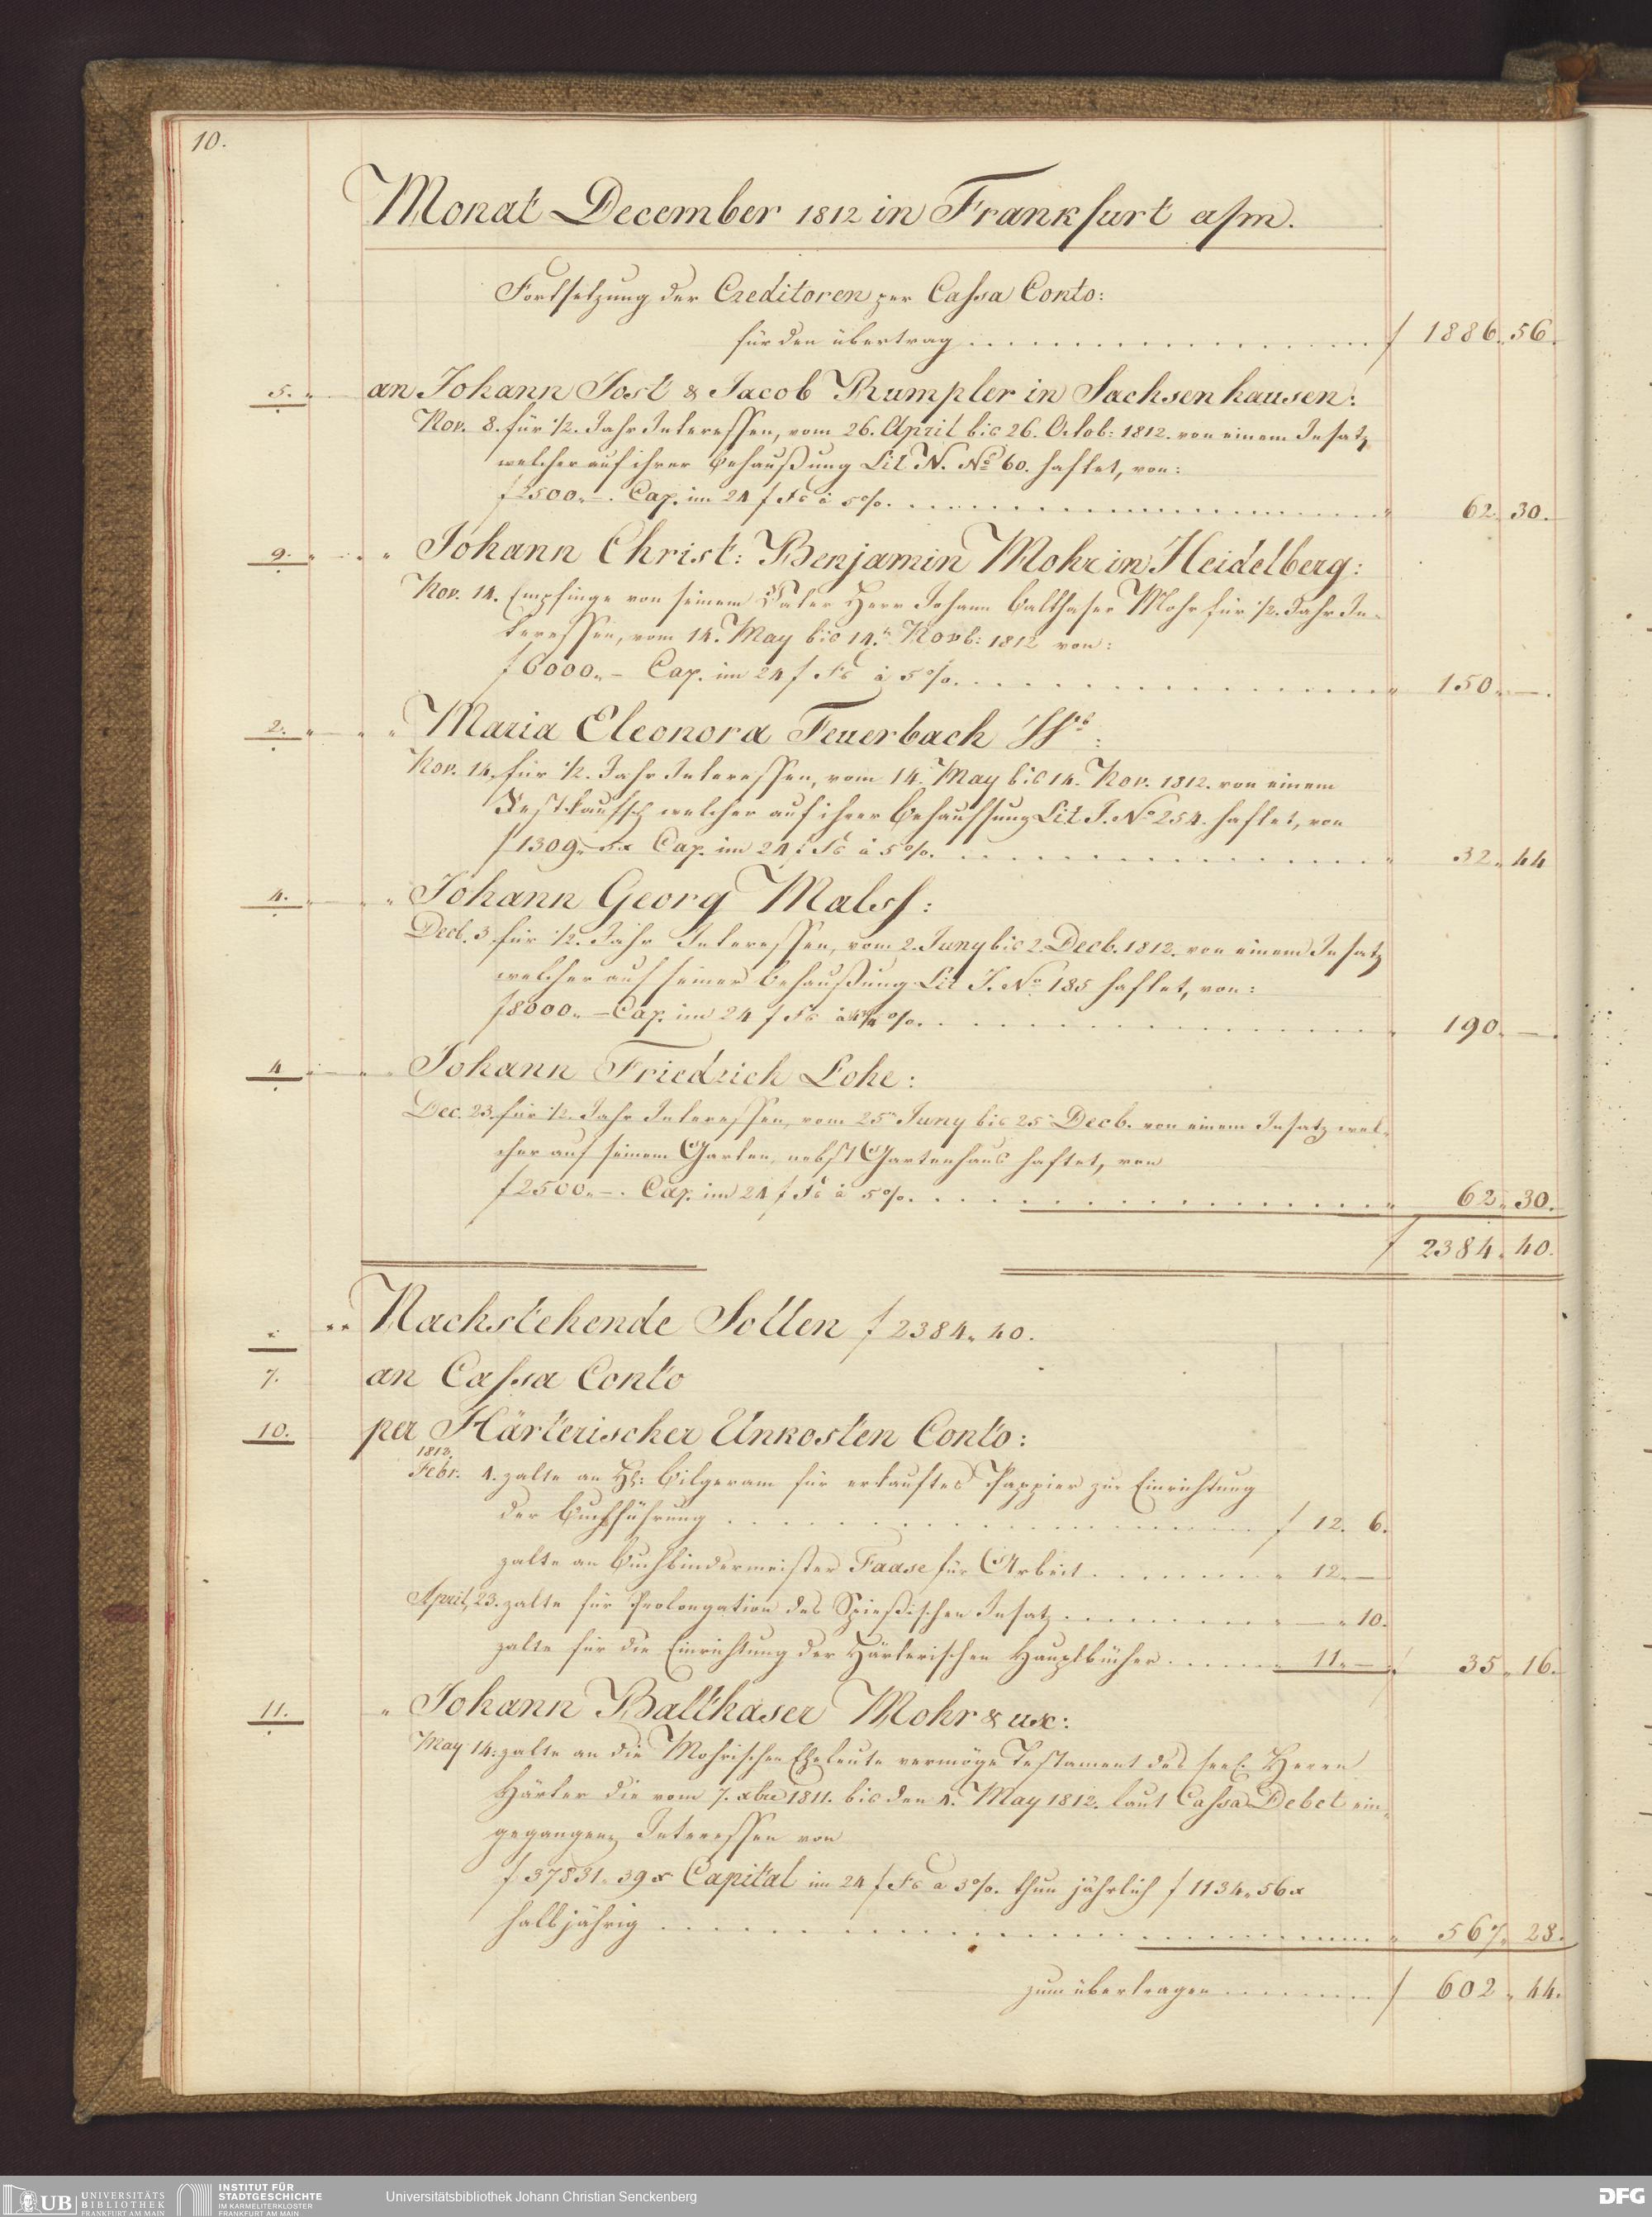 10.
Monat December 1812 in Frankfurt a/m.
Fortsetzung der Creditoren per Cassa Conto:
für den übertrag . . . . . f 1886. 56.
5. an Johann Jost & Jacob Rumpler in Sachsenhausen:
Nov. 8. für 1/2. Jahr Interessen, vom 26. April bis 26. Octob: 1812. von einem Insatz
welcher auf ihrer Behaußung Lit N. No 60. haftet, von:
f 2500.- . Cap. im 24 f Fs à 5 %. . . . . . " 62. 30.
9. " " Johann Christ: Benjamin Mohr in Heidelberg:
Nov. 14. Empfinge von seinem Vater Herr Johann Balthaser Mohr für 1/2. Jahr In-
teressen, vom 14. May bis 14. Novb: 1812 von:
f 6000.- Cap. im 24 f Fs à 5 %. . . . . . " 150. -.
2. " " Maria Eleonora Feuerbach
Nov. 14. für 1/2. Jahr Interessen, vom 14. May bis 14. Nov. 1812. von einem
welcher auf ihrer Behaussung Lit J. No 254. haftet, von
f 1309. Cap. im 24 f Fs à 5 %. . . . . . " 32. 44
4. " " Johann Georg Malss:
Decb. 3 für 1/2. Jahr Interessen, vom 2. Juny bis 2. Decb. 1812. von einem Insatz
welcher auf seiner Behaußung Lit J. No 185 haftet, von:
f 8000.- Cap. im 24 f Fs à 4 3/4 %. . . . . . " 190. -.
4 " " Johann Friedrich Lohe:
Dec. 23. für 1/2. Jahr Interessen, vom 25 Juny bis 25 Decb. von einem Insatz wel-
cher auf seinem Garten, nebst Gartenhaus haftet, von
f 2500.- . Cap. im 24 f Fs à 5 %. . . . . . " 62. 30.
f 2384. 40.
Nachstehende Sollen f 2384. 40.
7. an Cassa Conto
10. per Härterischer Unkosten Conto:
1812.
Febr. 1. zalte an Hl: Bilgeram für erkauftes Pappier zur Einrichtung
der Buchführung . . . . . f 12. 6.
zalte an Buchbindermeister Faase für Arbeit . . . . . " 12. -
April, 23. zalte für Prolongation des Spießischen Insatz . . . . . " - " 10.
zalte für die Einrichtung der Härterischen Hauptbücher . . . . . " 11. - f 35. 16.
11. " Johann Balthaser Mohr & ux:
May 14: zalte an die Mohrischen Eheleute vermöge Testament des seel. Herrn
Härter die vom 7. xbre 1811. bis den 1. May 1812. laut Cassa Debet ein-
gegangene Interessen von
f 37831. 39 x Capital im 24 f Fs à 3 %. thun jährlich f 1134. 56 x
halbjährig . . . . . " 567. 28.
zum übertragen . . . . . f 602. 44.
UB UNIVERSITÄTS
BIBLIOTHEK
FRANKFURT AM MAIN
INSTITUT FÜR
STADTGESCHICHTE
IM KARMELITERKLOSTER
FRANKFURT AM MAIN
Universitätsbibliothek Johann Christian Senckenberg
DFG